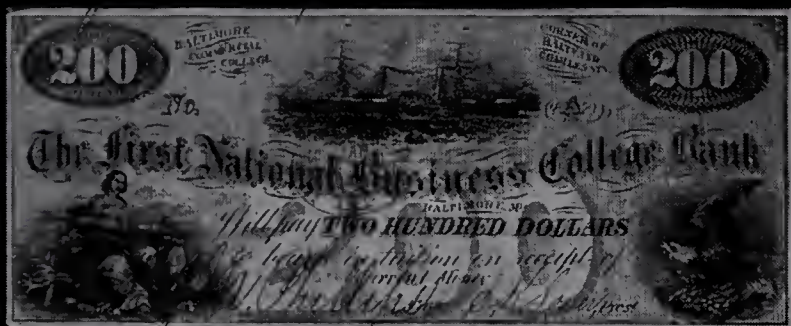 200
BALTIMORE
COMMERCIAL
COLLEGE
CORNER OF
BALTO AND
CHARLES STS
200
No.
The First National Business College Bank
BALTIMORE, MD
Will pay TWO HUNDRED DOLLARS
to bearer in tuition on receipt of
Current Money